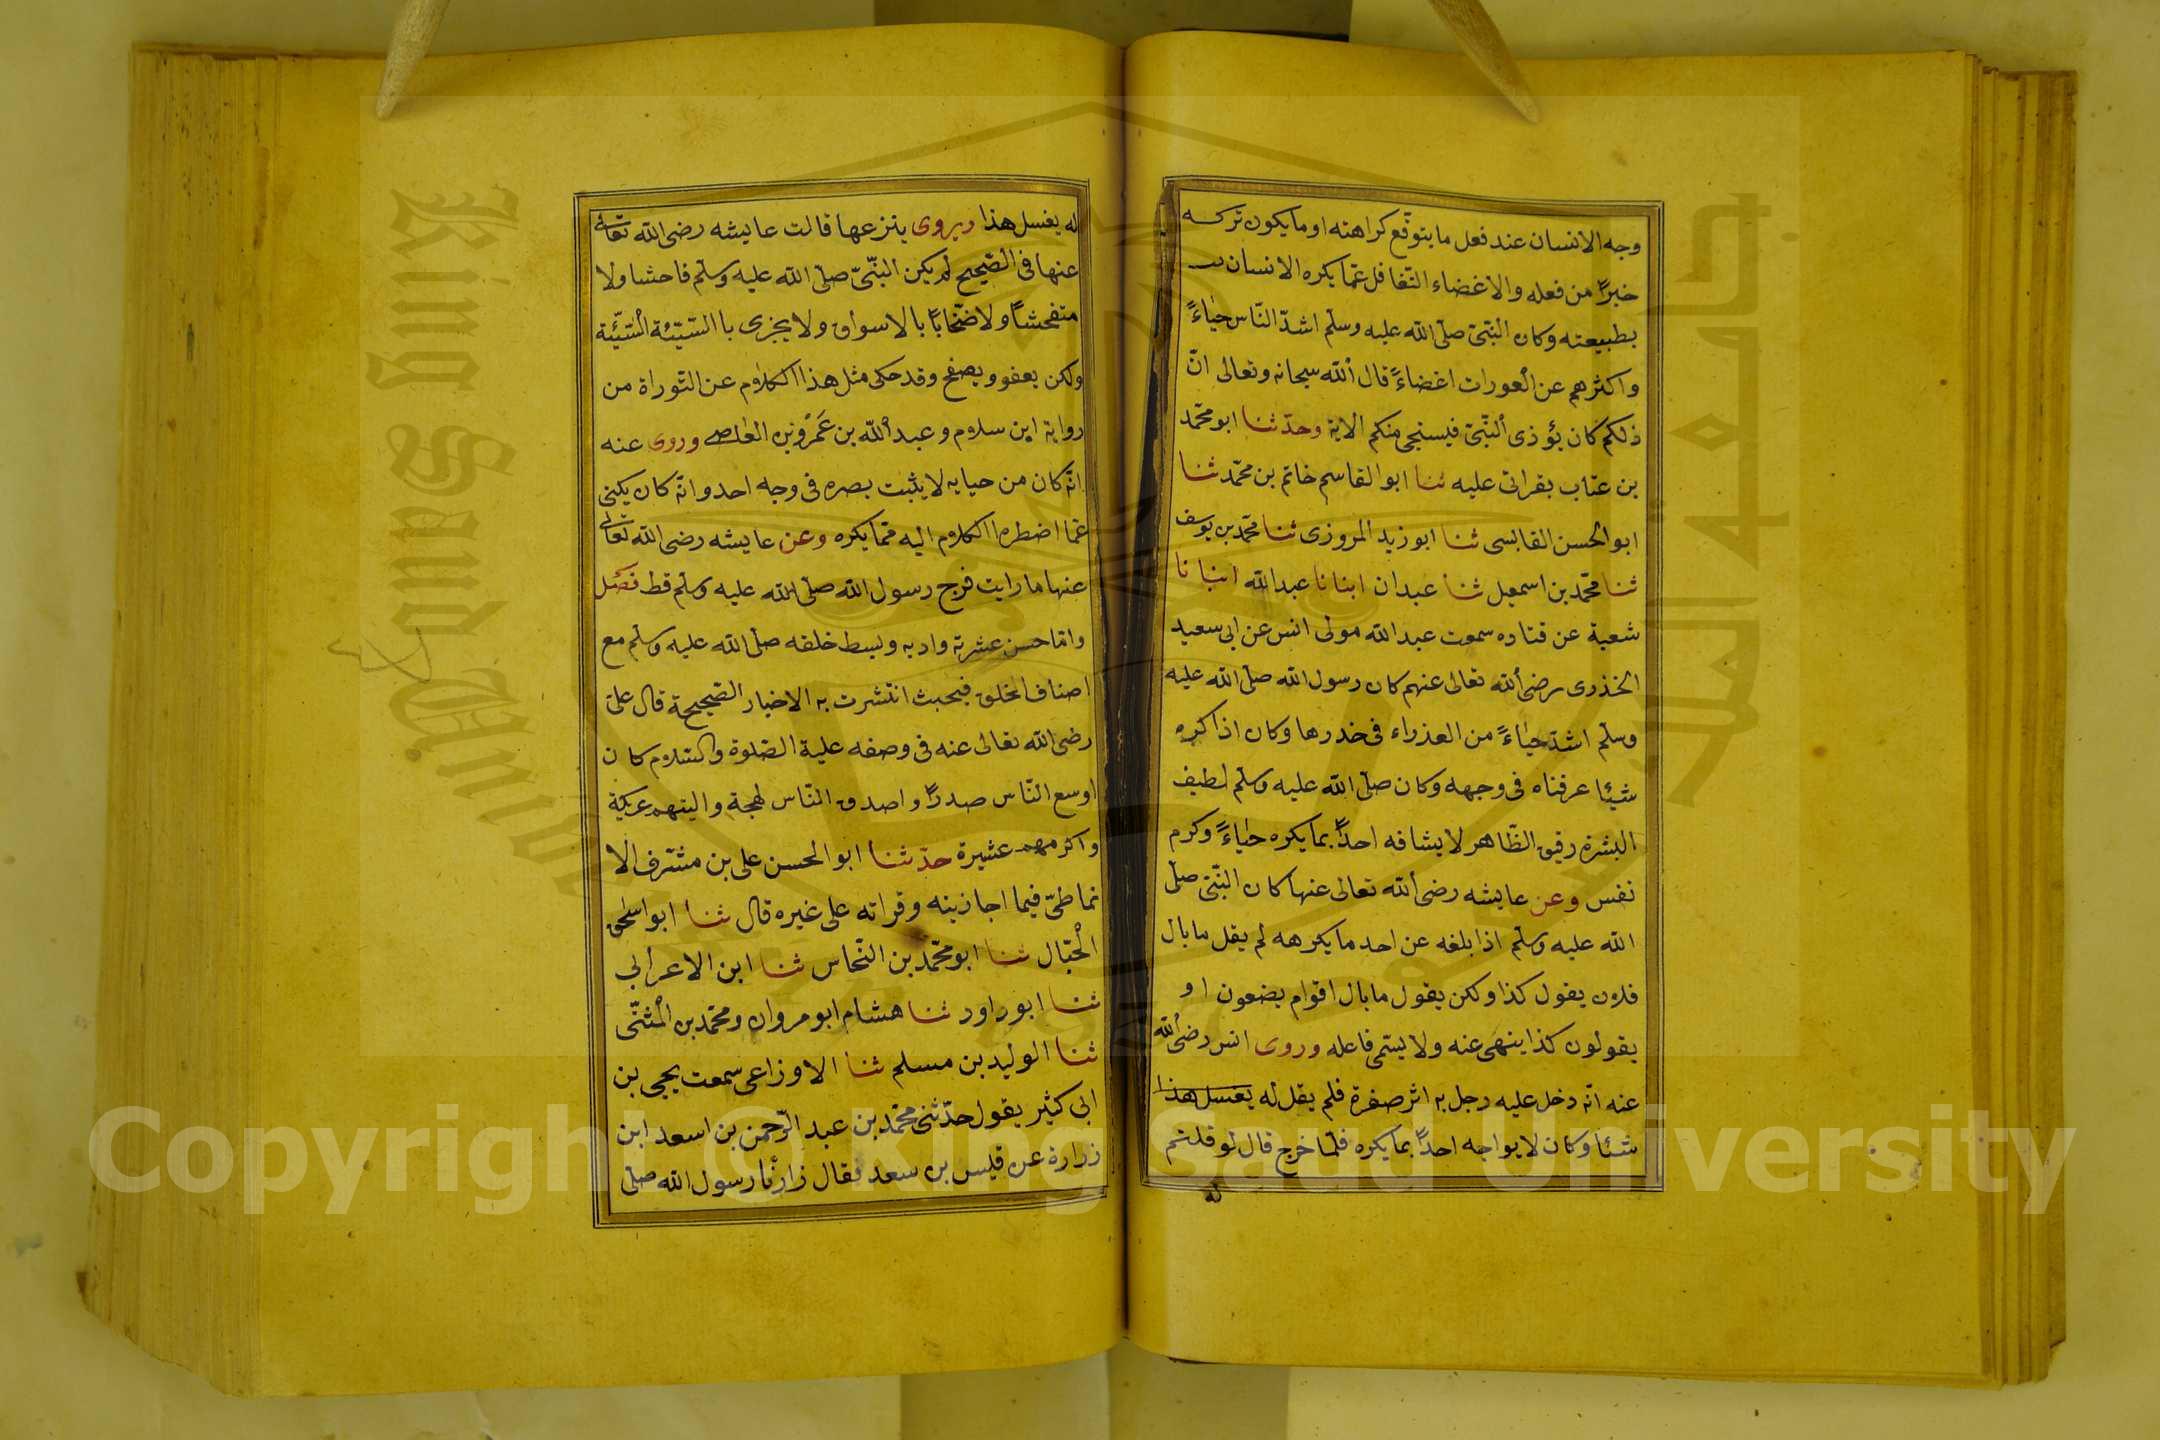 وجه الانسان عند فعل ما يتوقّع كراهته او ما يكون تركه
خيرًا من فعله والاغضاء التّغافل عمّا يكره الانسان
بطبيعته وكان النّبيّ صلّى الله عليه وسلّم اشدّ النّاس حياءً
واكثرهم عن العورات اغضاءً قال الله سبحانه وتعالى انّ
ذلكم كان يؤذى النّبيّ فيستحي منكم الاية وحدّثنا ابو محمّد
بن عتاب بقراتى عليه ثنا ابو القاسم خاتم بن محمّد ثنا
ابو الحسن القابسى ثنا ابو زيد المروزى ثنا محمّد بن يوسف
ثنا محمّد بن اسمعيل ثنا عبدان ابنانا عبد الله ابنانا
شعبة عن قتاده سمعت عبد الله مولى انس عن ابى سعيد
الخذرى رضى الله تعالى عنهم كان رسول الله صلّى الله عليه
وسلّم اشدّ حياءً من العذراء فى خدرها وكان اذا كره
شيئا عرفناه فى وجهه وكان صلّى الله عليه وسلّم لطيف
البشرة رقيق الظّاهر لا يشافه احدًا بما يكره حياءً وكرم
نفس وعن عايشه رضى الله تعالى عنها كان النّبيّ صلّى
الله عليه وسلّم اذا بلغه عن احد ما يكرهه لم يقل ما بال
فلان يقول كذا ولكن يقول ما بال اقوام يضعون او
يقولون كذا ينهى عنه ولا يسمّى فاعله وروى انس رضى الله
عنه انّه دخل عليه رجل به اثر صفرة فلم يقل له يغسل هذا
شيئا وكان لا يواجه احدًا بما يكره فلمّا خرج قال لو قلتم
له
له يغسل هذا ويروى ينزعها قالت عايشه رضى الله تعالى
عنها فى الصّحيح لم يكن النّبيّ صلّى الله عليه وسلّم فاحشا ولا
متفحشًا ولا صخّابًا بالاسواق ولا يجزى باالسّيّئة السّيّئة
ولكن يعفو ويصفح وقد حكى مثل هذا الكلام عن التّوراة من
رواية ابن سلام وعبد الله بن عَمْرو بن العاصى وروى عنه
انّه كان من حيايه لا يثبت بصره فى وجه احد وانّه كان يكنى
عمّا اضطره الكلام اليه ممّا يكره وعن عايشه رضى الله تعالى
عنها ما رايت فرج رسول الله صلّى الله عليه وسلّم قط فصل
وامّا حسن عشرته وادبه وبسط خلقه صلّى الله عليه وسلّم مع
اصناف الخلق فبحيث انتشرت به الاخبار الصّحيحة قال علىّ
رضى الله تعالى عنه فى وصفه عليه الصّلوة والسّلام كان
اوسع النّاس صدرًا واصدق النّاس لهجة والينهم عريكة
واكرمهم عشيرة حدّثنا ابو الحسن على بن مشرف الا
نماطىّ فيما اجازينه وقراته على غيره قال ثنا ابو اسحق
الْحبّال ثنا ابو محمّد بن النّحاس ثنا ابن الاعرابى
ثنا ابو داود ثنا هشام ابو مروان ومحمّد بن الْمثنّى
ثنا الوليد بن مسلم ثنا الاوزاعى سمعت يحيى بن
ابى كثير يقول حدّثنى محمّد بن عبد الرّحمن بن اسعد ابن
زرارة عن قيس بن سعد فقال زارنا رسول الله صلّى
King Saud University
جامعة الملك سعود
Copyright © King Saud University